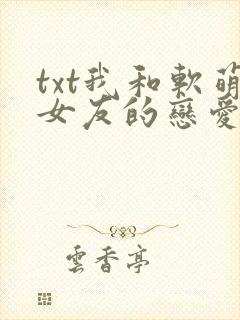 txt我和軟萌
女友的戀愛
雲香亭